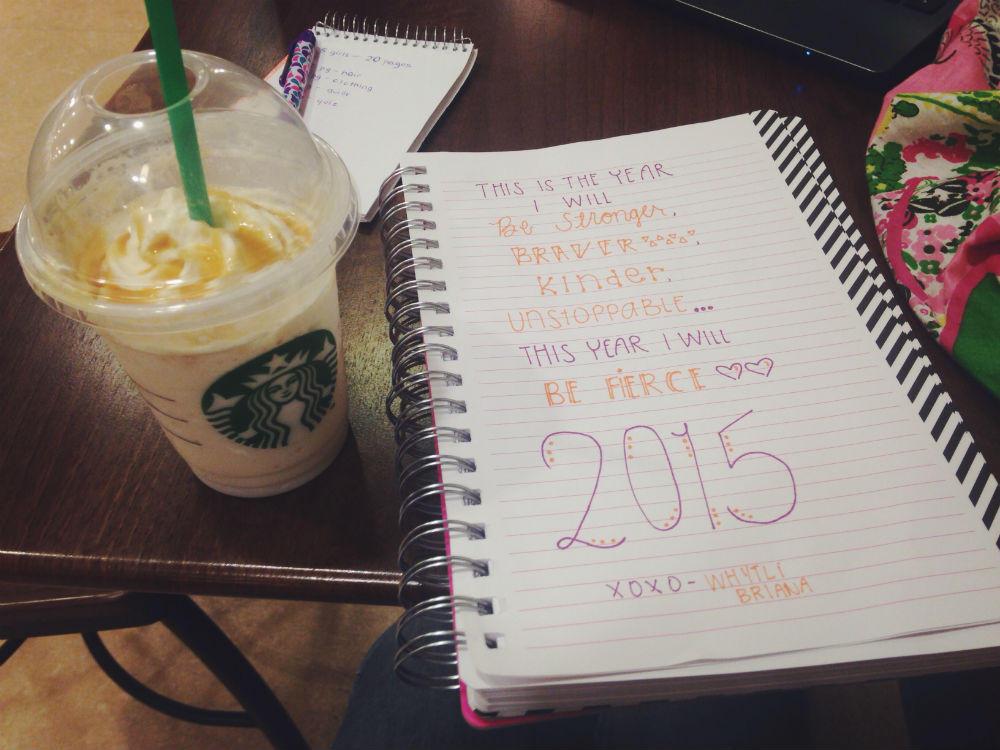 girls - 20 pages
hair
- clothing
quiz
THIS IS THE YEAR
I WILL
Be Stronger.
BRAVER.
Kinder.
UNSTOPPABLE...
THIS YEAR I WILL
BE FIERCE
2015
XOXO - WHYTLI
BRIANA